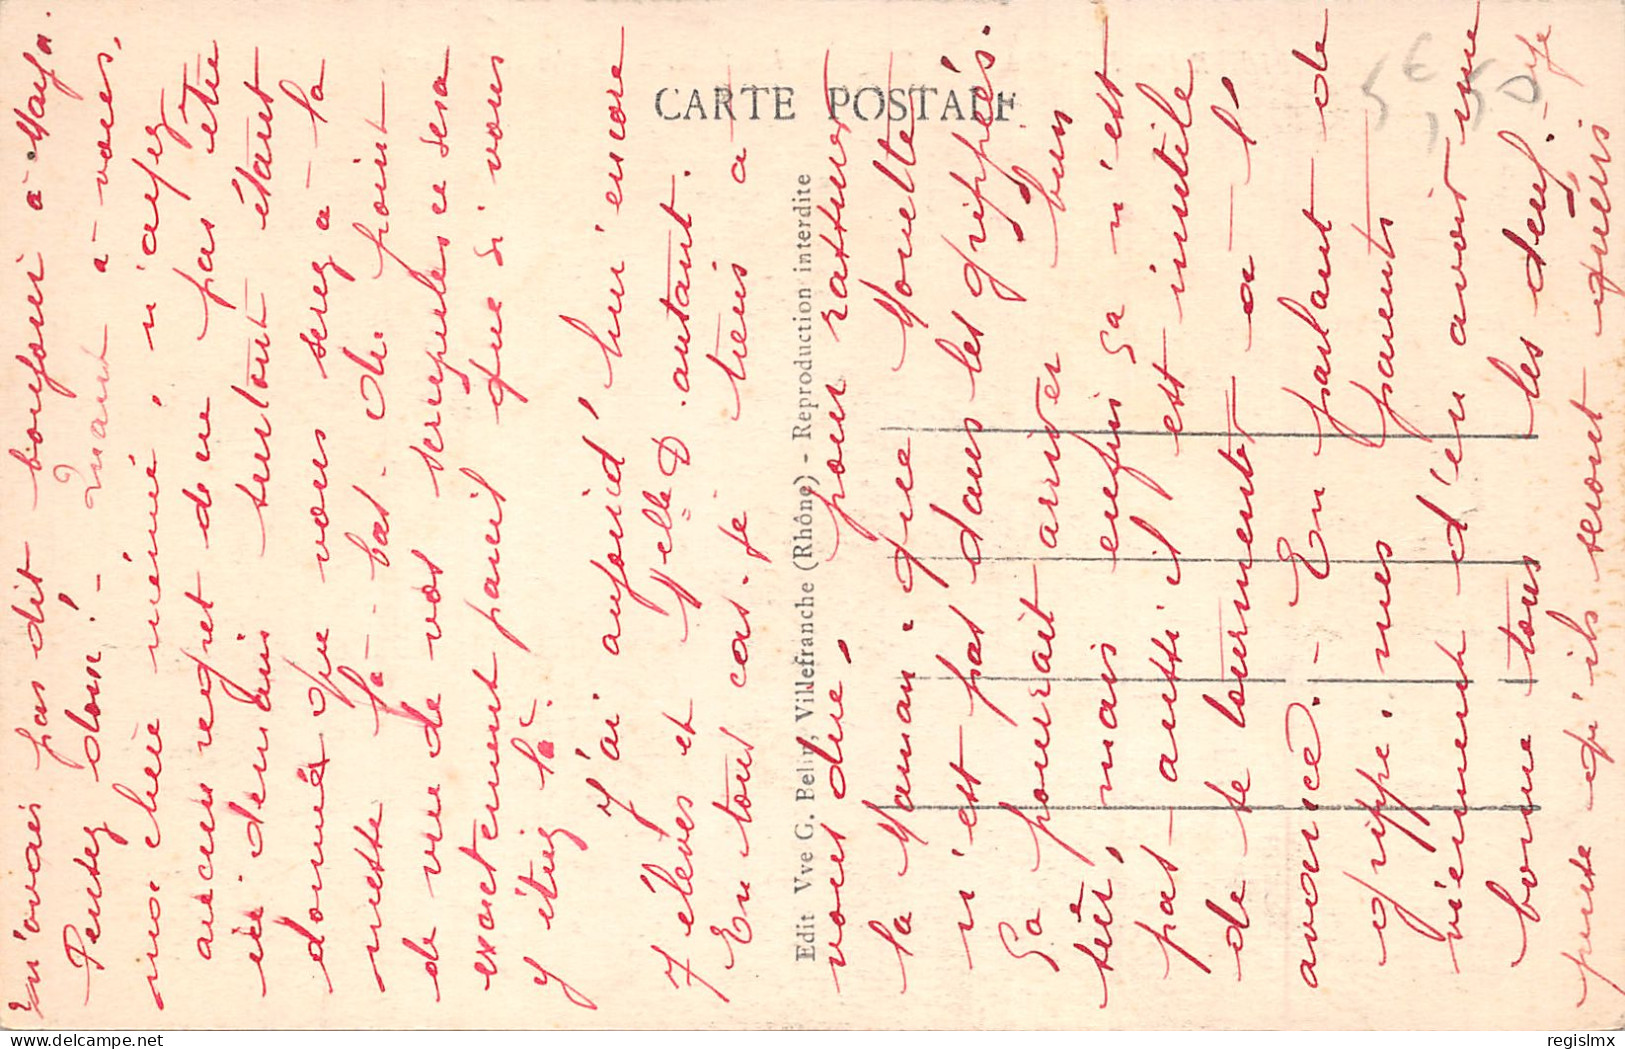 m'avais pas dit bonjour à Maya.
Pensez donc! - Quant à vous,
ma chère mémé, n'ayez
aucun regret de ne pas être
ici demain surtout étant
donné que vous serez à la
messe là-bas. Au point
de vue de vos scrupules ce sera
exactement pareil que si vous
y étiez là.
J'ai aujourd'hui encore
7 élèves et Melle D. autant.
En tout cas. je tiens à
vous dire, pour rassurer
la Maman que Moulte
n'est pas dans les grippés.
Ça pourrait arriver bien
sûr, mais enfin ça n'est
pas - aussi il est inutile
de se tourmenter à l'
avance. - En parlant de
grippe, mes parents
viennent d'en avoir une
bonne tous les deux. Je
pense qu'ils seront guéris
CARTE POSTALE
Edit Vve G. Belin, Villefranche (Rhône) - Reproduction interdite
5€,50
regislmx